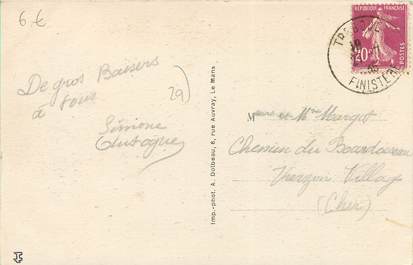 6 €
De gros Baisers
à tous
29)
Simone
Imp.-phot. A. Dolbeau, 6, rue Auvray, Le Mans
REPUBLIQUE FRANÇAISE
20
FINISTERE
M et Mme Margot
Chemin du
Vierzon Village
(Cher)